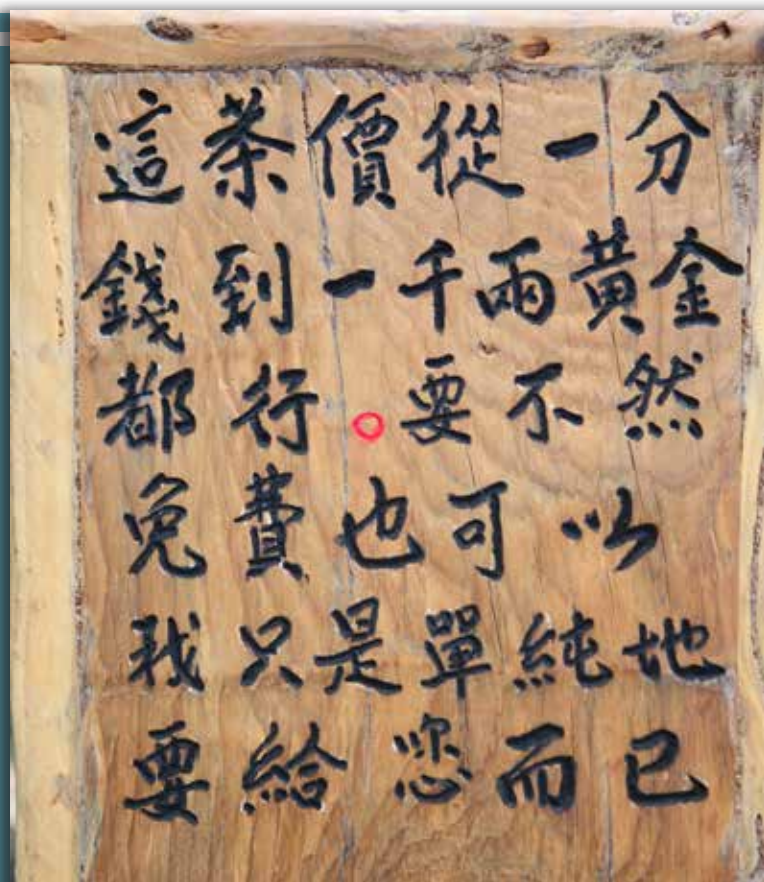 這茶價從一分
錢到一千兩黃金
都行。要不然
免費也可以
我只是單純地
要給您而已